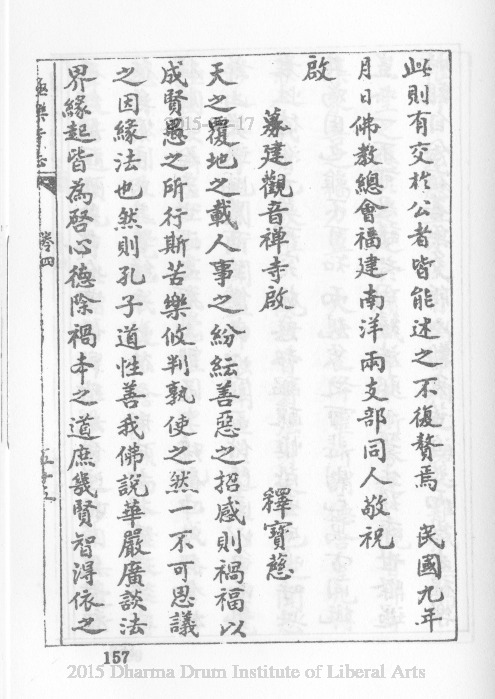 此則有交於公者皆能述之不復贅焉　民國九年
月日佛教總會福建南洋兩支部同人敬祝
啟
募建觀音禪寺啟　釋寶慈
天之覆地之載人事之紛紜善惡之招感則禍福以
成賢愚之所行斯苦樂攸判孰使之然一不可思議
之因緣法也然則孔子道性善我佛說華嚴廣談法
界緣起皆為啓心德除禍本之道庶幾賢智得依之
極樂寺志
卷四
157
2015 Dharma Drum Institute of Liberal Arts